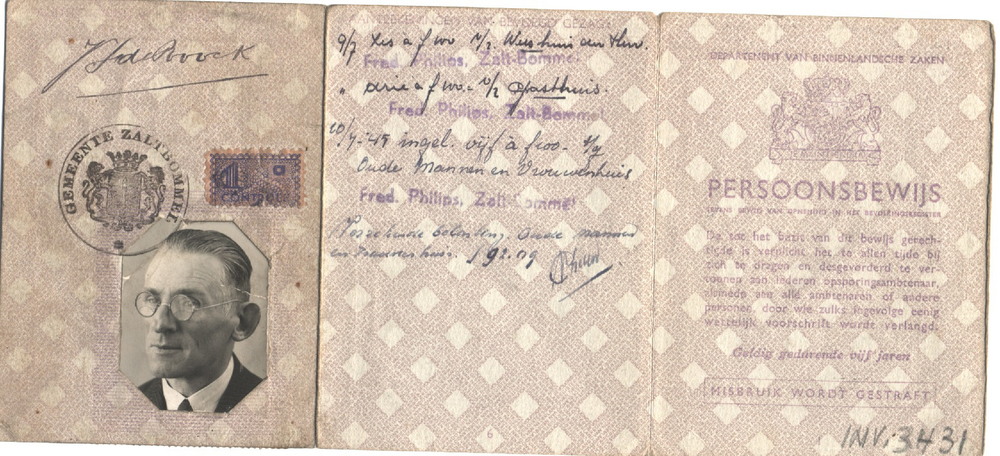 J S de Roock
GEMEENTE ZALTBOMMEL
1
CONTROLE
AANTEEKENINGEN VAN BEVOEGD GEZAG
9/7 Zes a f 100
Fred. Philips, Zalt-Bommel
" Drie a f 100.- Gasthuis.
Fred. Philips, Zalt-Bommel
10/7-45 ingel. vijf à f 100-
Oude Mannen en Vrouwenhuis
Fred. Philips, Zalt-Bommel
Oude mannen
en vrouwenhuis. f 92.09
6
DEPARTEMENT VAN BINNENLANDSCHE ZAKEN
PERSOONSBEWIJS
TEVENS BEWIJS VAN OPNEMING IN HET BEVOLKINGSREGISTER
De tot het bezit van dit bewijs gerech-
tigde is verplicht het te allen tijde bij
zich te dragen en desgevorderd te ver-
toonen aan iederen opsporingsambtenaar,
alsmede aan alle ambtenaren of andere
personen, door wie zulks ingevolge eenig
wettelijk voorschrift wordt verlangd.
Geldig gedurende vijf jaren
MISBRUIK WORDT GESTRAFT
INV. 3431